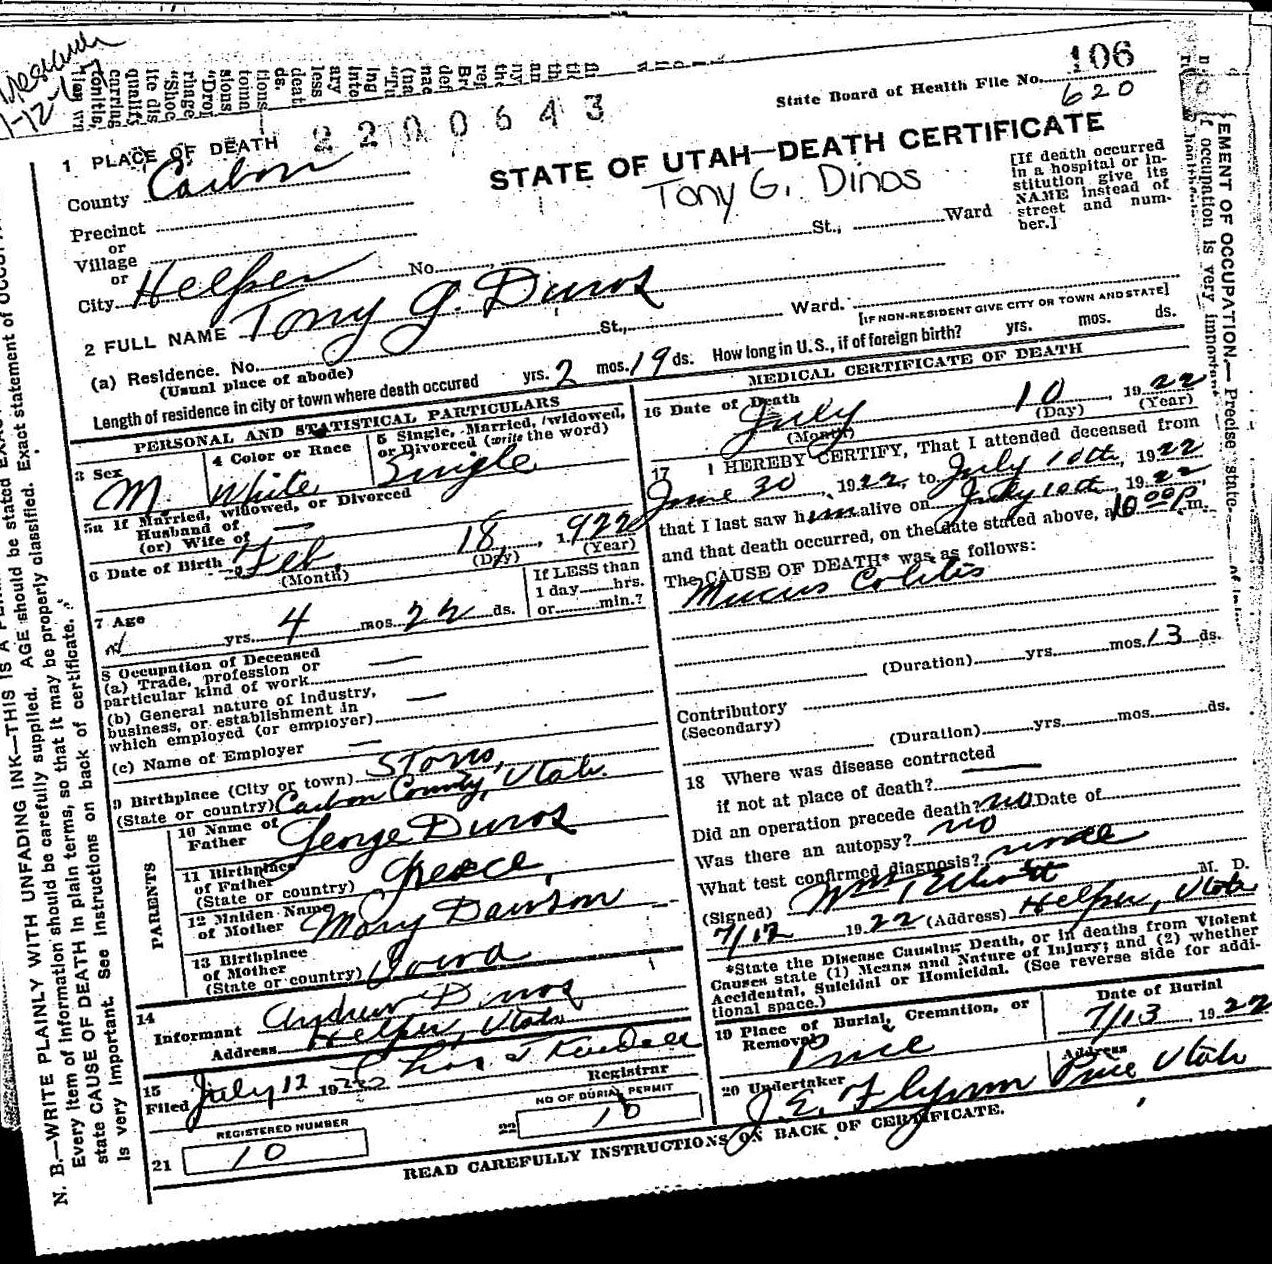 106
State Board of Health File No.
620
2200643
STATE OF UTAH—DEATH CERTIFICATE
Tony G. Dinos
[If death occurred
in a hospital or in-
stitution give its
NAME instead of
street and num-
ber.]
1 PLACE OF DEATH
County Carbon
Precinct
or
Village
or
City Helper No. St., Ward
2 FULL NAME Tony G. Dinos
(a) Residence. No. St., Ward.
(Usual place of abode) [IF NON-RESIDENT GIVE CITY OR TOWN AND STATE]
Length of residence in city or town where death occured yrs. 2 mos. 19 ds. How long in U.S., if of foreign birth? yrs. mos. ds.
PERSONAL AND STATISTICAL PARTICULARS
3 Sex
M.
4 Color or Race
White
5 Single, Married, Widowed,
or Divorced (write the word)
Single
5a If Married, widowed, or Divorced
Husband of
(or) Wife of —
6 Date of Birth Feb. 18, 1922
(Month) (Day) (Year)
7 Age
yrs. 4 mos. 22 ds.
If LESS than
1 day hrs.
or min.?
8 Occupation of Deceased
(a) Trade, profession or
particular kind of work —
(b) General nature of industry,
business, or establishment in
which employed (or employer) —
(c) Name of Employer —
9 Birthplace (City or town) Storrs,
(State or country) Carbon County, Utah.
PARENTS
10 Name of
Father George Dinos
11 Birthplace
of Father
(State or country) Greece,
12 Maiden Name
of Mother Mary Dawson
13 Birthplace
of Mother
(State or country) Iowa
14
Informant Andrew Dinos
Address Helper, Utah
15
Filed July 12 1922 Chas J Kendall
Registrar
REGISTERED NUMBER
21 10
NO OF BURIAL PERMIT
22 10
MEDICAL CERTIFICATE OF DEATH
16 Date of Death
July 10, 1922
(Month) (Day) (Year)
17 I HEREBY CERTIFY, That I attended deceased from
June 30, 1922, to July 10th, 1922
that I last saw him alive on July 10th, 1922,
and that death occurred, on the date stated above, at 10 00 P. m.
The CAUSE OF DEATH* was as follows:
Mucus Colitis
(Duration) yrs. mos. 13 ds.
Contributory
(Secondary)
(Duration) yrs. mos. ds.
18 Where was disease contracted
if not at place of death? —
Did an operation precede death? no Date of
Was there an autopsy? no
What test confirmed diagnosis? none
(Signed) M. D.
7/12 1922 (Address) Helper, Utah
*State the Disease Causing Death, or in deaths from Violent
Causes state (1) Means and Nature of Injury; and (2) whether
Accidental, Suicidal or Homicidal. (See reverse side for addi-
tional space.)
19 Place of Burial, Cremation, or
Removal Price
Date of Burial
7/13, 1922
20 Undertaker
J. E. Flynn
Address
Price Utah
READ CAREFULLY INSTRUCTIONS ON BACK OF CERTIFICATE.
N. B.—WRITE PLAINLY WITH UNFADING INK—THIS IS A
Every item of information should be carefully supplied. AGE should be stated
state CAUSE OF DEATH in plain terms, so that it may be properly classified. Exact statement of
is very important. See instructions on back of certificate.
EMENT OF OCCUPATION.—Precise state-
of occupation is very important